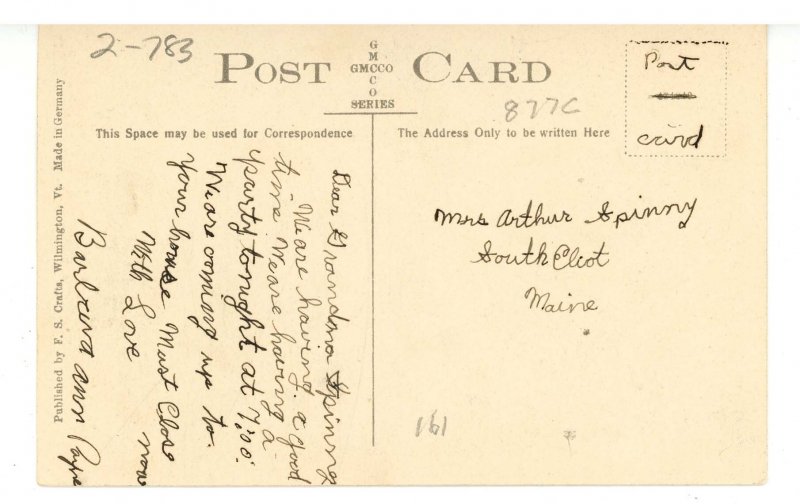 2-783
POST CARD
GMCCO
GMCCO
SERIES
877C
Post
card
This Space may be used for Correspondence
The Address Only to be written Here
Published by F. S. Crafts, Wilmington, Vt. Made in Germany
Dear Grandma Spinny
We are having a good
time. We are having a
party tonight at 7:00.
We are coming up to
your house Must Close
now
With Love
Barbara ann Payne
Mrs Arthur Spinny
South Eliot
Maine
191